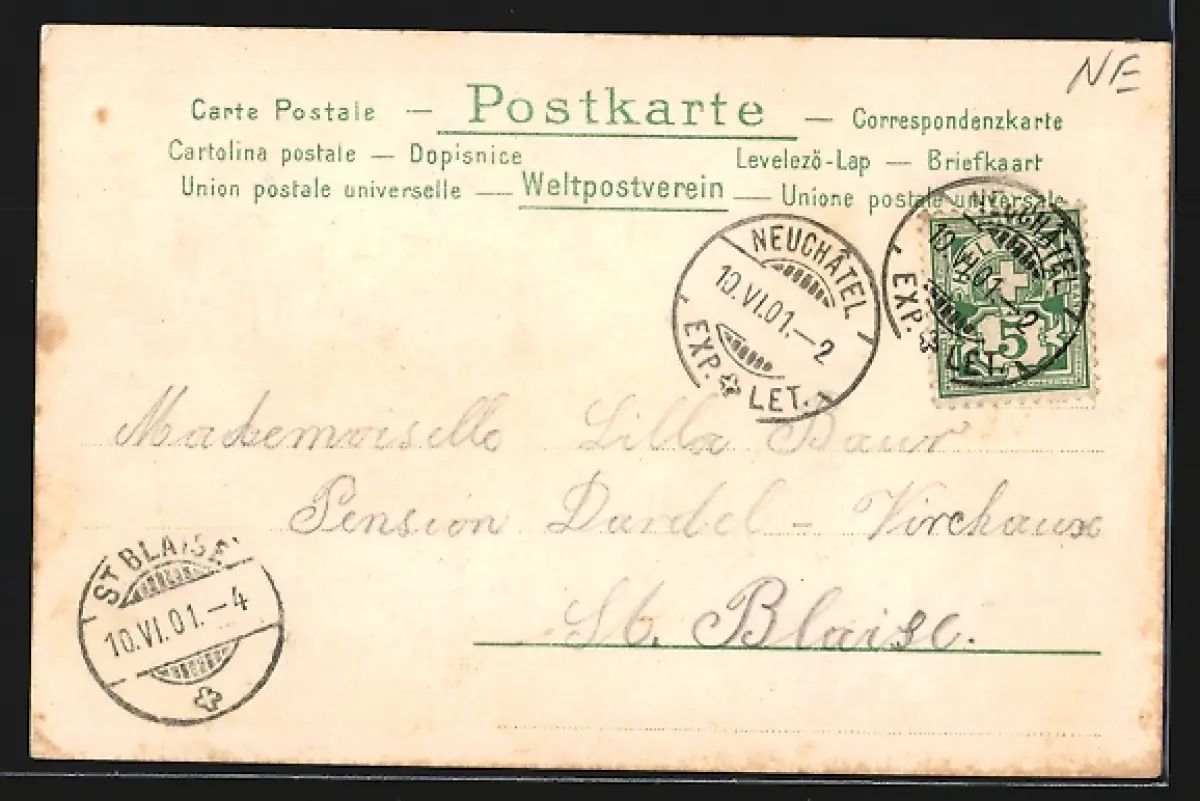 NE
Carte Postale — Postkarte — Correspondenzkarte
Cartolina postale — Dopisnice Levelező-Lap — Briefkaart
Union postale universelle — Weltpostverein — Unione postale universale
NEUCHÂTEL
10.VI.01.–2
EXP. LET.
NEUCHÂTEL
10.VI.01.–2
EXP. LET.
5
Mademoiselle Lilla Baur
Pension Dardel – Virchaux
St. Blaise.
ST BLAISE
10.VI.01.–4